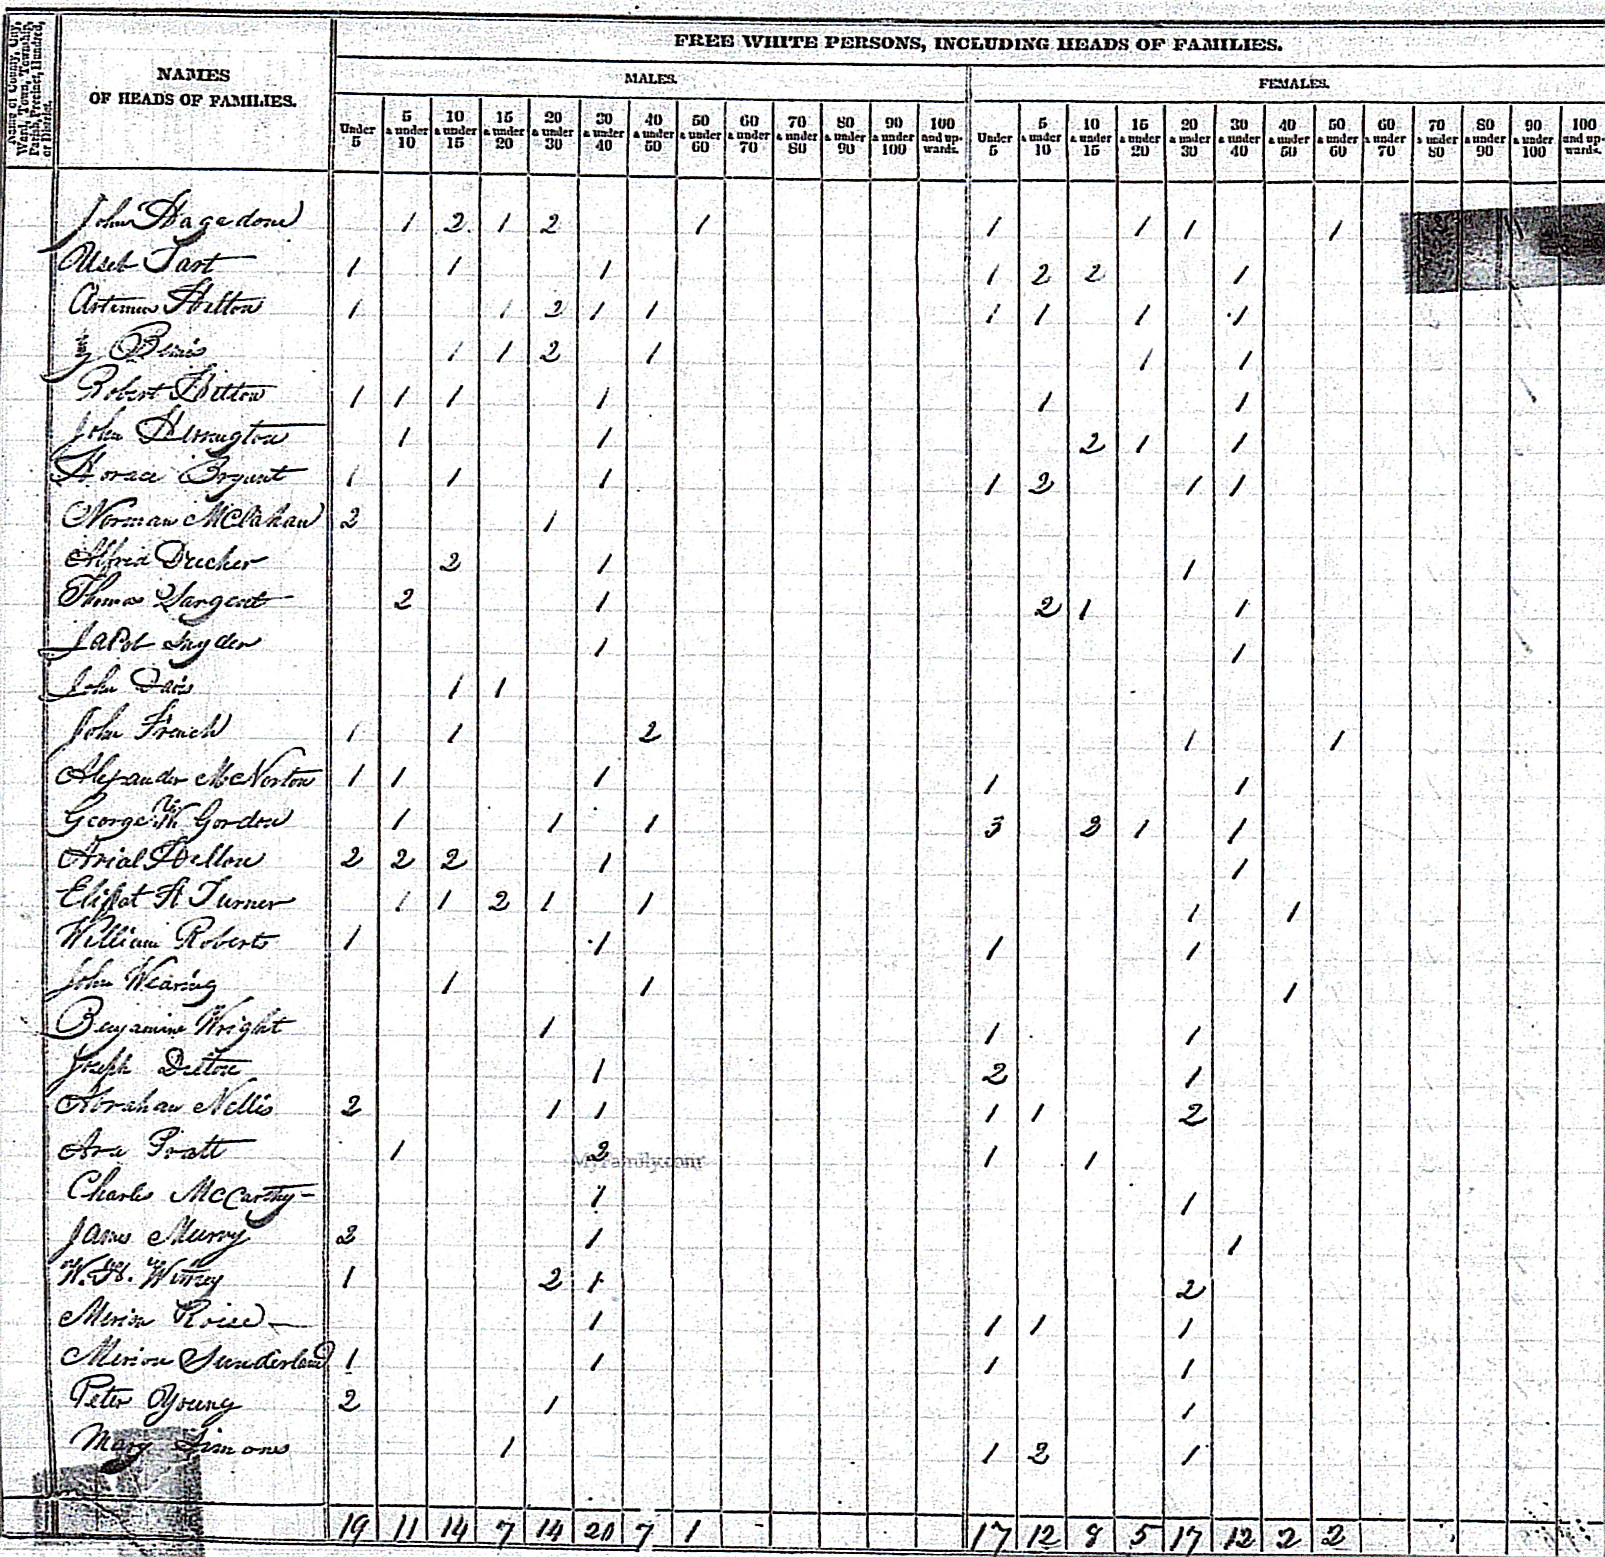 Name of County, City, Ward, Town, Township, Parish, Precinct, Hundred, or District.
NAMES
OF HEADS OF FAMILIES.
FREE WHITE PERSONS, INCLUDING HEADS OF FAMILIES.
MALES. FEMALES.
Under 5 5 & under 10 10 & under 15 15 & under 20 20 & under 30 30 & under 40 40 & under 50 50 & under 60 60 & under 70 70 & under 80 80 & under 90 90 & under 100 100 and upwards. Under 5 5 & under 10 10 & under 15 15 & under 20 20 & under 30 30 & under 40 40 & under 50 50 & under 60 60 & under 70 70 & under 80 80 & under 90 90 & under 100 100 and upwards.
John Hagedone 1 2 1 2 1 1 1 1 1
Tart 1 1 1 1 2 2 1
Artemus Hilton 1 1 2 1 1 1 1 1 1
Bemis 1 1 2 1 1 1
Robert Hilton 1 1 1 1 1 1
John Herrington 1 1 2 1 1
Horace Bryant 1 1 1 1 2 1 1
Norman 2 1
Alfred 2 1 1
Thomas Sargent 2 1 2 1 1
Jacob Snyder 1 1
John Davis 1 1
John French 1 1 2 1 1
Alexander McNorton 1 1 1 1 1
George W Gordon 1 1 1 3 2 1 1
Arial 2 2 2 1 1
H Turner 1 1 2 1 1 1 1
William Roberts 1 1 1 1
John Wearing 1 1 1
Benjamine Wright 1 1 1
Joseph 1 2 1
Abraham Nellis 2 1 1 1 1 2
Asa Pratt 1 2 1 1
MyFamily.com
Charles McCarthy 1 1
James Murry 2 1 1
W. H. 1 2 1 2
1 1 1 1
Sunderland 1 1 1 1
Peter Young 2 1 1
Mary Simons 1 1 2 1
19 11 14 7 14 20 7 1 17 12 8 5 17 12 2 2